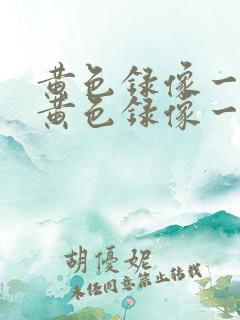 黄色録像一
黄色録像一
胡優妮
未经同意禁止转载